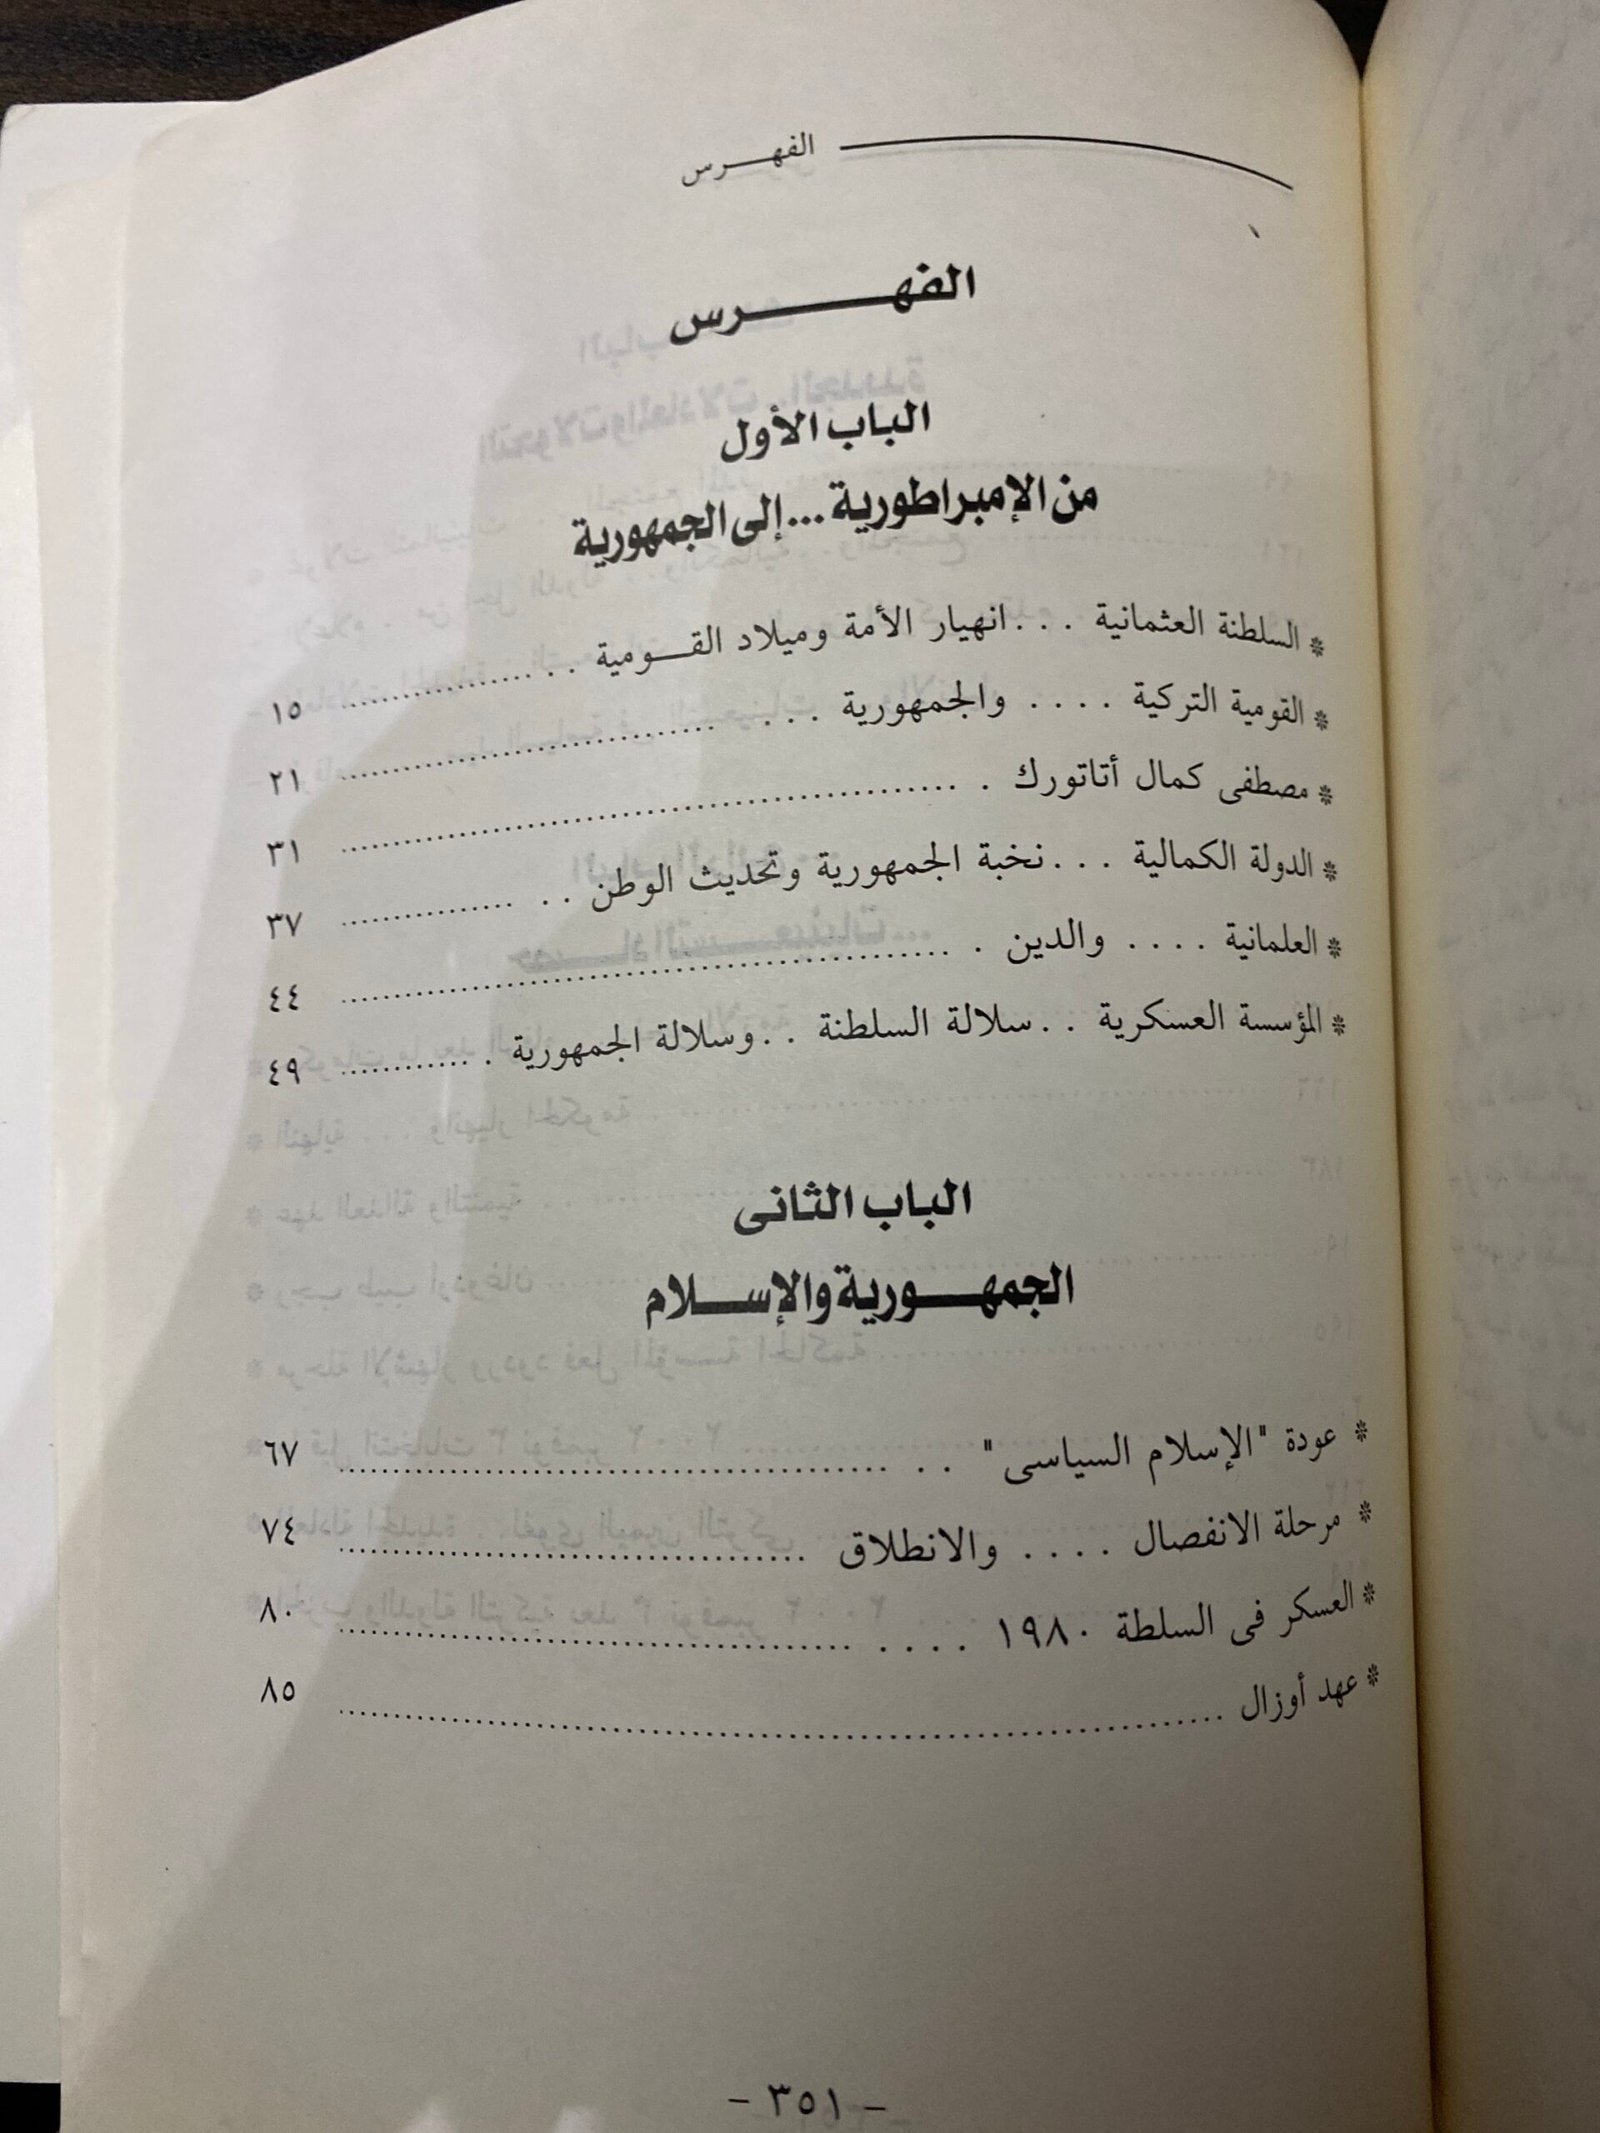 الفهـــرس
الفهــــــــرس
الباب الأول
من الإمبراطورية ... إلى الجمهورية
* السلطنة العثمانية . . . انهيار الأمة وميلاد القـــومية . . ................ ١٥
* القومية التركية . . . . والجمهورية . . . ................................ ٢١
* مصطفى كمال أتاتورك . ................................................ ٣١
* الدولة الكمالية . . . نخبة الجمهورية وتحديث الوطن . . .............. ٣٧
* العلمانية . . . . والدين . ................................................ ٤٤
* المؤسسة العسكرية . . سلالة السلطنة . . وسلالة الجمهورية . ........... ٤٩
الباب الثانى
الجمهـــورية والإســـلام
* عودة "الإسلام السياسى" . . ............................................ ٦٧
* مرحلة الانفصال . . . . والانطلاق ..................................... ٧٤
* العسكر فى السلطة ١٩٨٠ . . . . ........................................ ٨٠
* عهد أوزال ............................................................ ٨٥
- ٣٥١ -